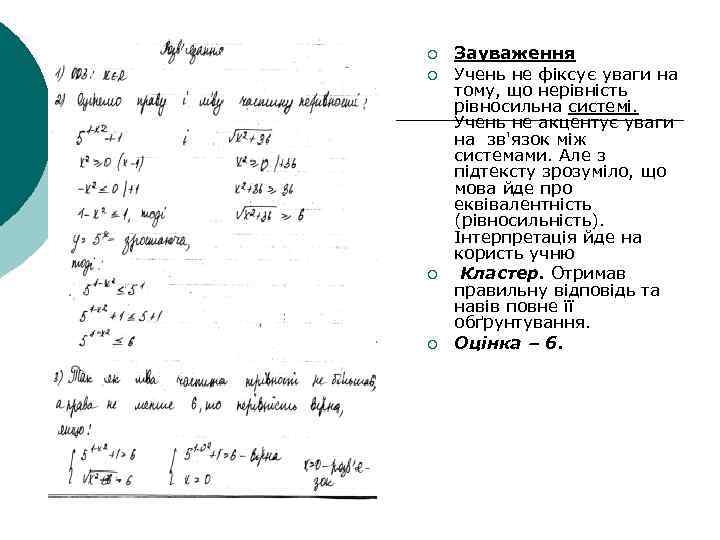 Розв'язання
1) ОДЗ: x∈R
2) Оцінемо праву і ліву частину нерівності:
5^{1-x²}+1 і √(x²+36)
x² ≥ 0 |(x-1) x² ≥ 0 |+36
-x² ≤ 0 |+1 x²+36 ≥ 36
1-x² ≤ 1, тоді √(x²+36) ≥ 6
y = 5^x - зростаюча,
тоді:
5^{1-x²} ≤ 5^1
5^{1-x²}+1 ≤ 5+1
5^{1-x²} ≤ 6
3) Так як ліва частина нерівності не більша 6,
а права не менше 6, то нерівність вірна,
якщо!
{ 5^{1-x²}+1=6 { 5^{1-0²}+1=6 - вірна
√(x²+36)=6 x=0 x=0 - розв'я-
зок
Зауваження
Учень не фіксує уваги на
тому, що нерівність
рівносильна системі.
Учень не акцентує уваги
на зв'язок між
системами. Але з
підтексту зрозуміло, що
мова йде про
еквівалентність
(рівносильність).
Інтерпретація йде на
користь учню
Кластер. Отримав
правильну відповідь та
навів повне її
обґрунтування.
Оцінка – 6.